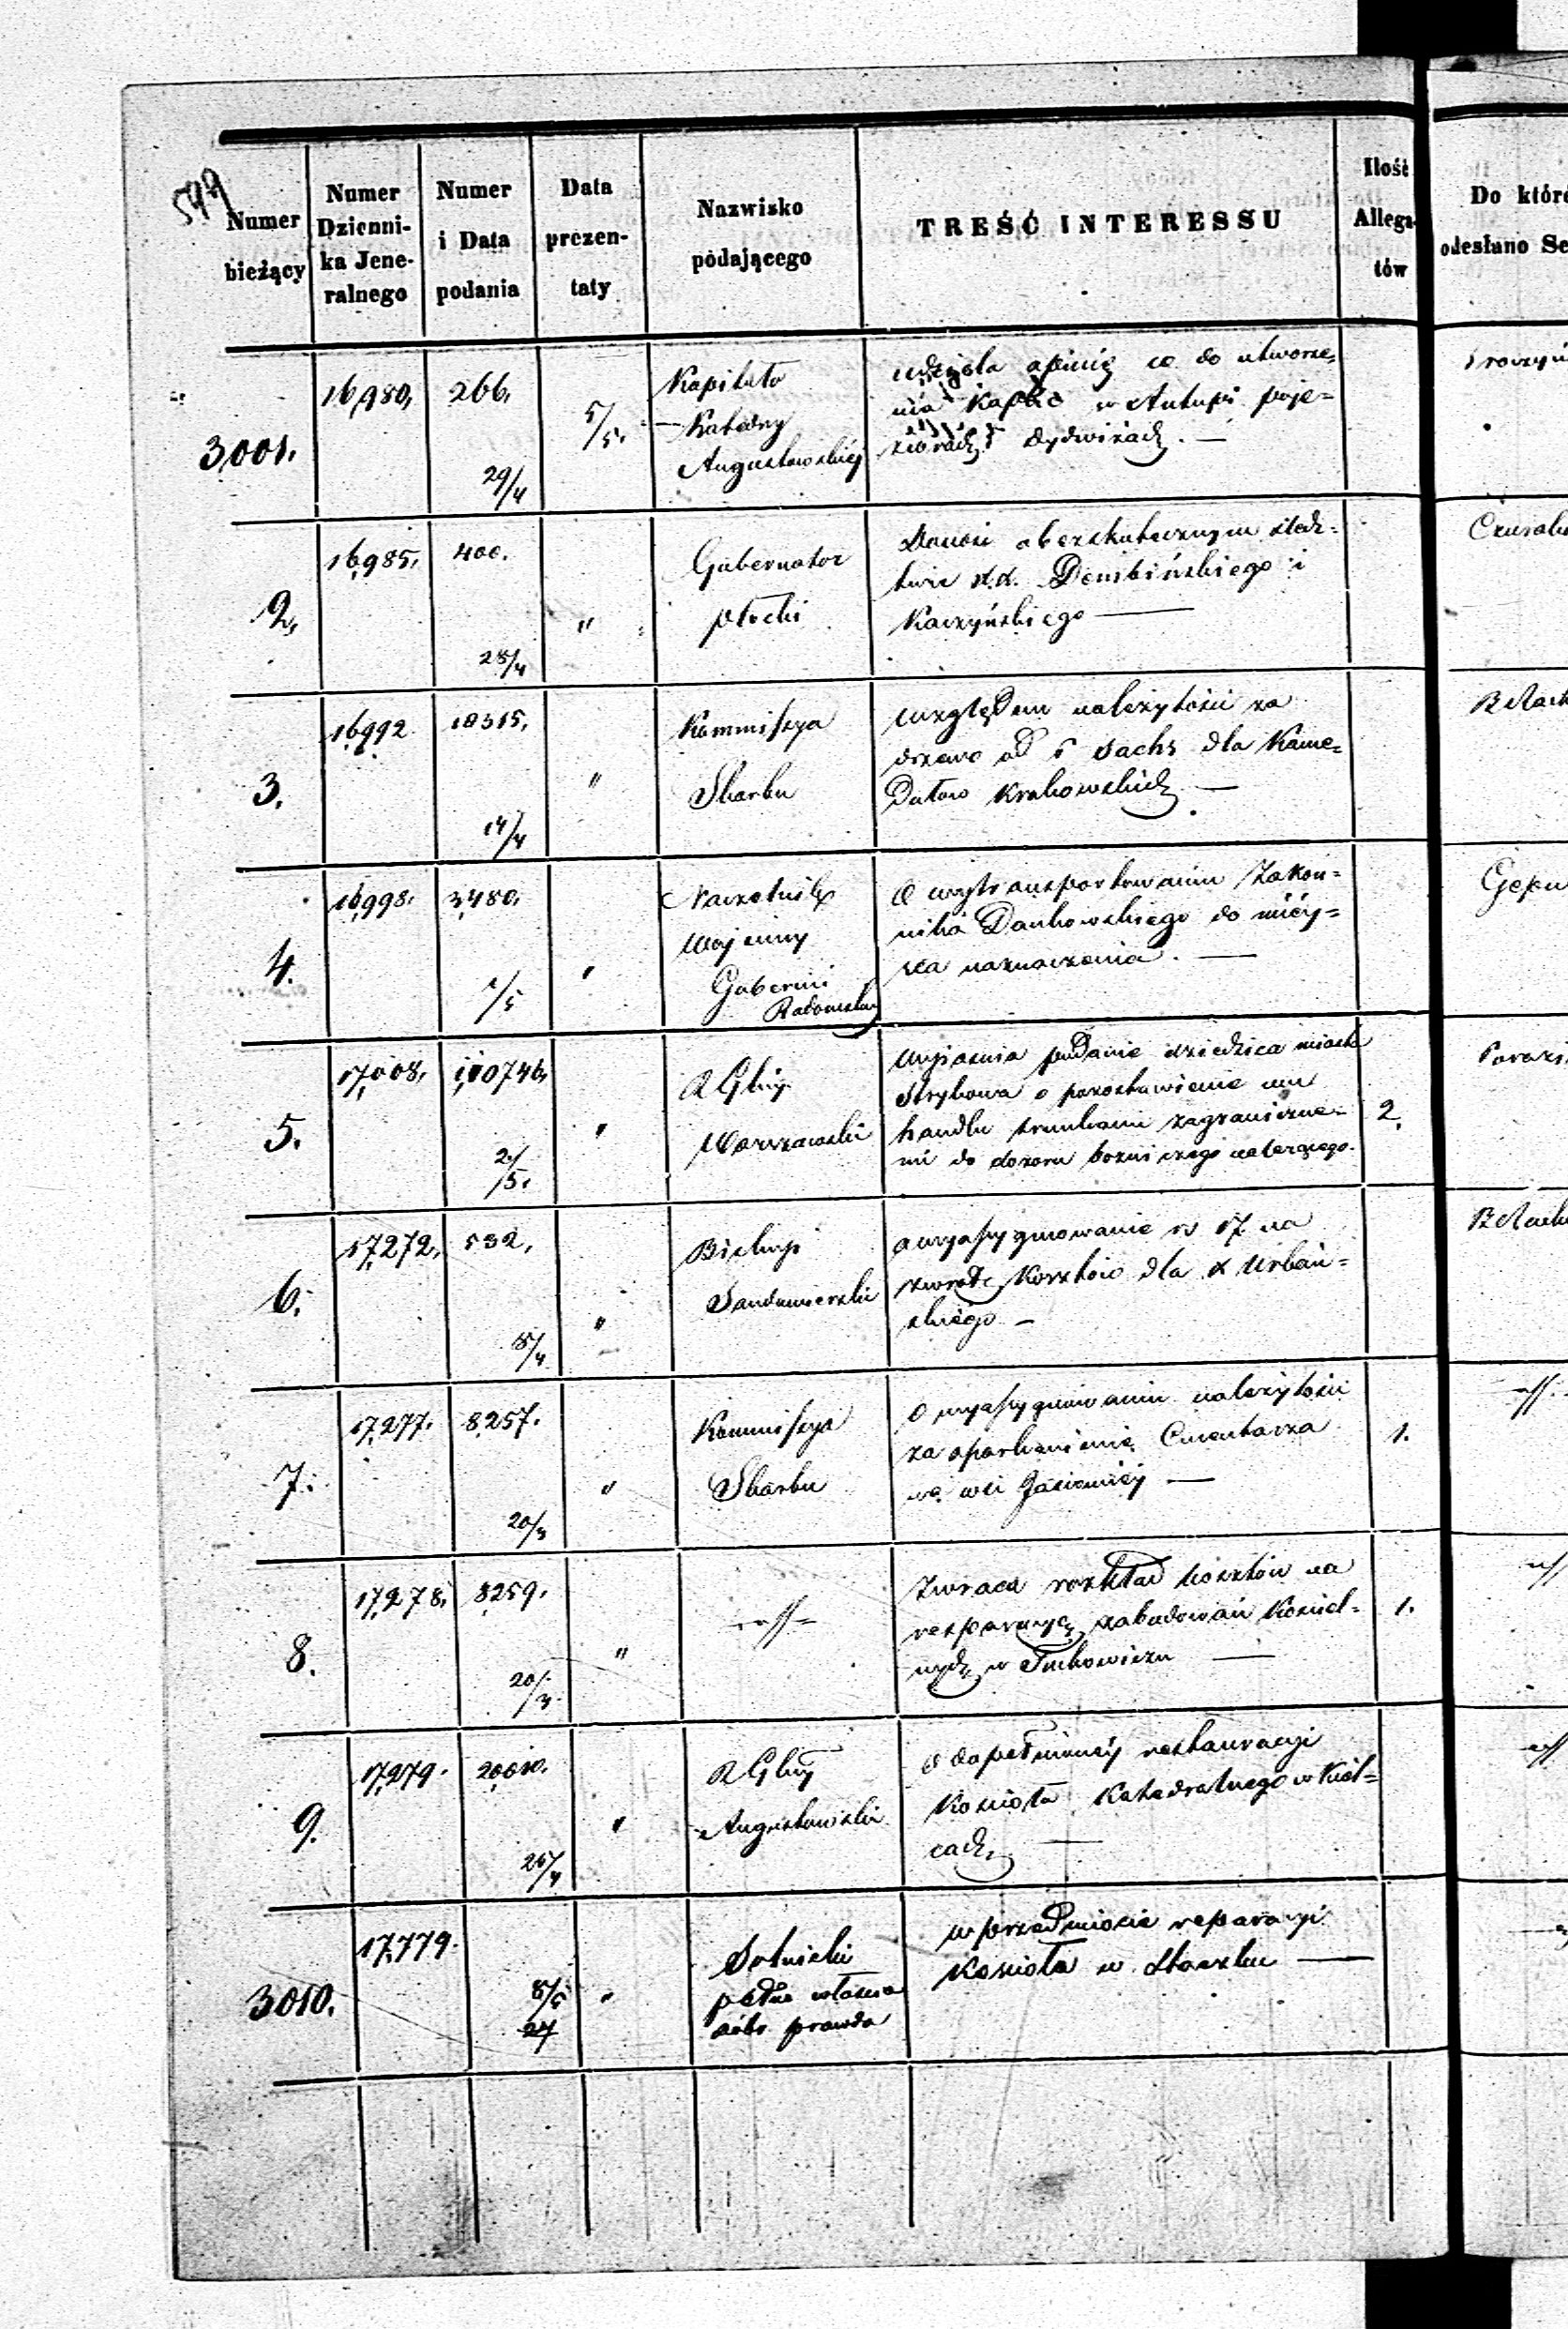 599
Numer bieżący
Numer Dzienni-ka Jene-ralnego
Numer i Data podania
Data prezen-taty
Nazwisko podającego
TREŚĆ INTERESSU
Ilość Allega-tów
Do któr
odesłano Se
3,001.
16,980,
266.
29/4
5/5.
Kapituła
Katedry
Augustowskiéj
udziela opinię co do utworze=
nia Kaplic w poje=
2,
16,985.
400.
28/4
"
Gubernator
płocki
Donosi o bezskutecznym śledz=
twie Dembińskiego i
Kaczyńskiego —
3.
16,992
18315.
14/4
"
Kommissya
Skarbu
względem należytości za
drzewo od Sachs dla Kame=
Dułów Krakowskich —
4.
16,998.
3,480.
1/5
"
Naczelnik
Wojenny
Gubernii
Radomskiej
O wytransportowaniu Zakon=
nika Dankowskiego do miéy=
sca naznaczenia. —
5.
17,008.
110746,
2/5.
"
R Gbny
Warszawski
Wyjaśnia podanie dziedzica miasta
Strykowa o pozostawienie mu
handlu trunkami zagraniczne=
mi do dozoru bożniczego należącego.
2.
6.
17,272,
532.
8/4
"
Biskup
Sandomierski
o wyassygnowanie rs 17 na
zwrot Kosztów dla X Urbań=
skiego —
7.
17,277.
8,257.
20/3
"
Kommissya
Skarbu
O wyassygnowaniu należytości
za oparkanienie Cmentarza
we wsi Jasienicy —
1.
8.
17,278.
8259.
20/3
"
Zwraca rozkład kosztów na
reparacyę zabudowań Kościel=
nych w Tuchowiczu —
1.
9.
17,279.
20,010.
"
R Gbny
Augustowski
O dopełnionéj restauracyi
Kościoła Katedralnego w Kiel=
cach —
3010.
17,779.
8/5
24
"
Solnicki
dóbr prawda
w przedmiocie reparacyi
Kościoła w Stoczku —